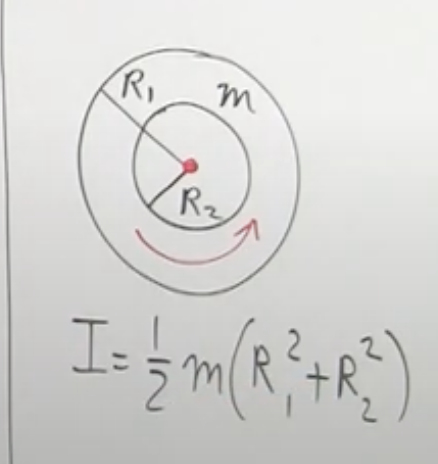 R₁ m
R₂
I = 1/2 m(R₁² + R₂²)